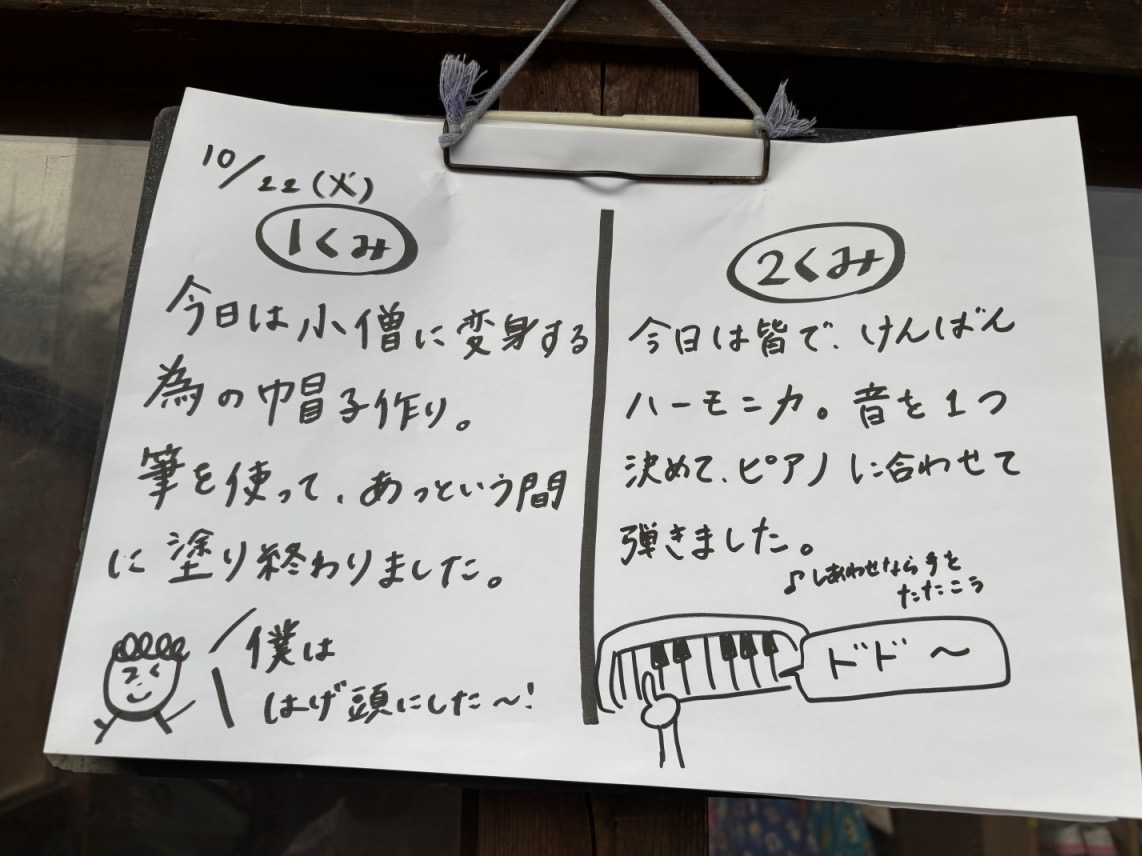 10/22(火)
1くみ
今日は小僧に変身する
為の帽子作り。
筆を使って、あっという間
に塗り終わりました。
僕は
はげ頭にした〜!
2くみ
今日は皆で、けんばん
ハーモニカ。音を1つ
決めて、ピアノに合わせて
弾きました。
♪しあわせなら手を
たたこう
ドド〜